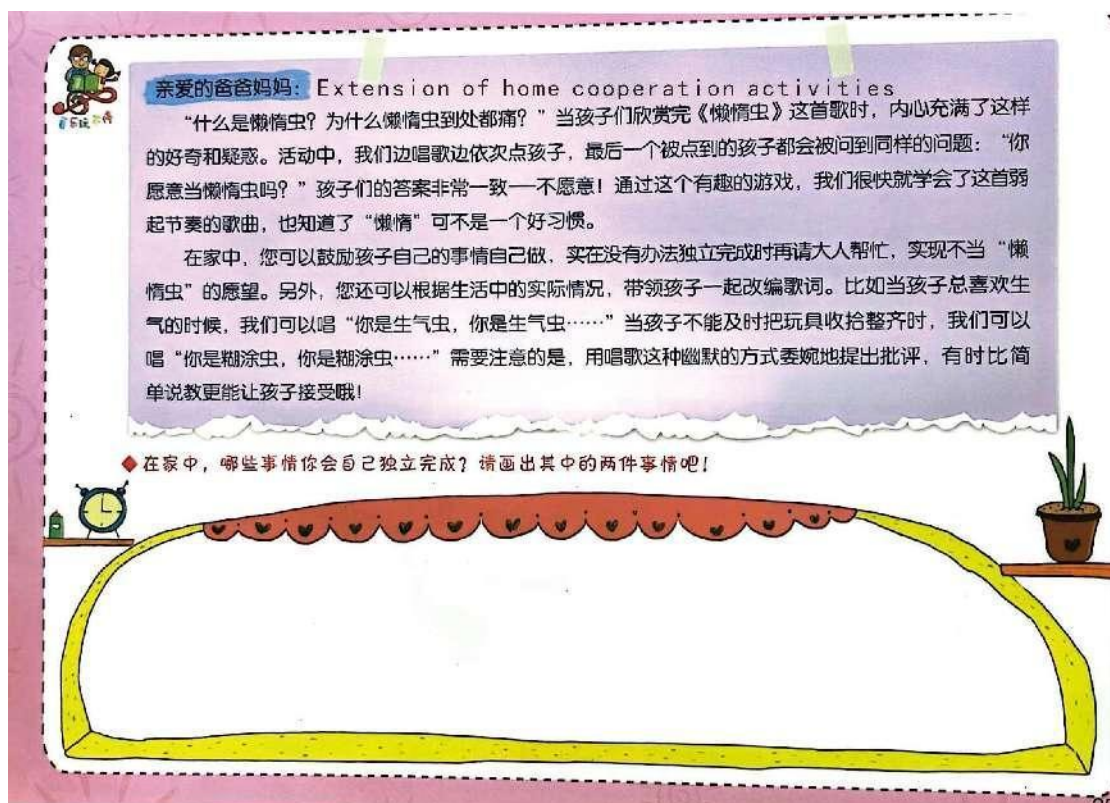 亲爱的爸爸妈妈：Extension of home cooperation activities
“什么是懒惰虫？为什么懒惰虫到处都痛？”当孩子们欣赏完《懒惰虫》这首歌时，内心充满了这样
的好奇和疑惑。活动中，我们边唱歌边依次点孩子，最后一个被点到的孩子都会被问到同样的问题：“你
愿意当懒惰虫吗？”孩子们的答案非常一致——不愿意！通过这个有趣的游戏，我们很快就学会了这首弱
起节奏的歌曲，也知道了“懒惰”可不是一个好习惯。
在家中，您可以鼓励孩子自己的事情自己做，实在没有办法独立完成时再请大人帮忙，实现不当“懒
惰虫”的愿望。另外，您还可以根据生活中的实际情况，带领孩子一起改编歌词。比如当孩子总喜欢生
气的时候，我们可以唱“你是生气虫，你是生气虫……”当孩子不能及时把玩具收拾整齐时，我们可以
唱“你是糊涂虫，你是糊涂虫……”需要注意的是，用唱歌这种幽默的方式委婉地提出批评，有时比简
单说教更能让孩子接受哦！
◆在家中，哪些事情你会自己独立完成？请画出其中的两件事情吧！